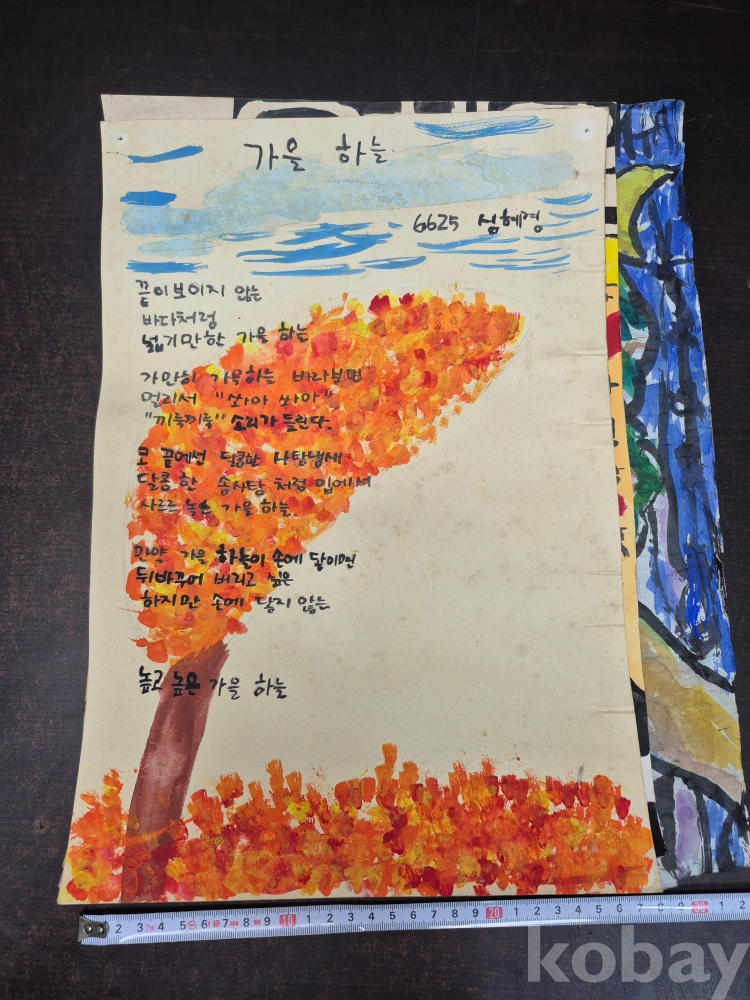 가을 하늘
6625 심혜경
끝이보이지 않는
바다처럼
넓기만한 가을 하늘
가만히 가을하늘 바라보면
멀리서 "쏴아 쏴아"
"끼룩끼룩" 소리가 들린다.
코 끝에선 달콤한 사탕냄새
달콤한 솜사탕 처럼 입에서
사르르 녹는 가을 하늘.
만약 가을 하늘이 손에 닿이면
뒤바꾸어 버리고 싶은
하지만 손에 닿지 않는
높고 높은 가을 하늘
2 3 4 5 6 7 8 9 10 1 2 3 4 5 6 7 8 9 20 1 2 3 4 5 6 7 8 9 30 1 2
kobay